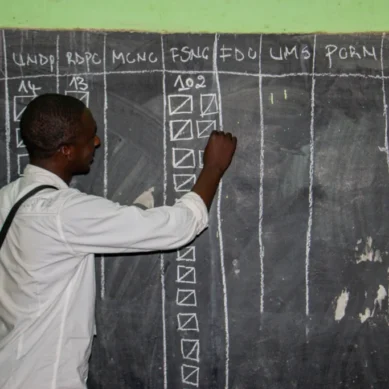 UNDP RDPC MCNC FSNC FDC UMS PCRN
14 13 102